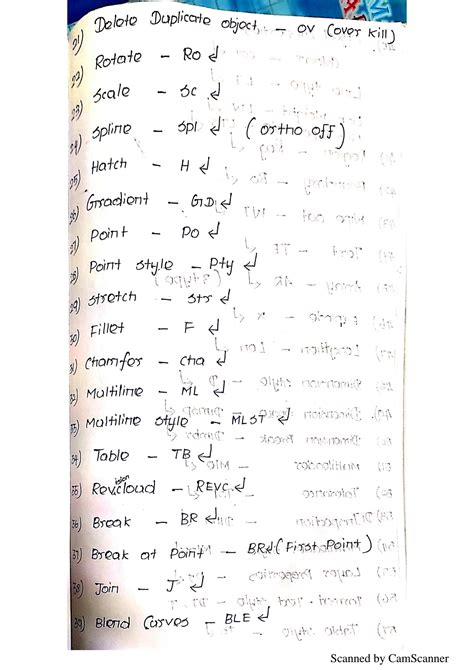 21) Delete Duplicate object - OV (over kill)
22) Rotate - RO ↲
23) Scale - SC ↲
24) Spline - Spl ↲ (ortho off)
25) Hatch - H ↲
26) Gradient - GD ↲
27) Point - PO ↲
28) Point style - Pty ↲
29) Stretch - Str ↲
30) Fillet - F ↲
31) Chamfer - Cha ↲
32) Multiline - ML ↲
33) Multiline style - MLST ↲
34) Table - TB ↲
35) Revision cloud - REVC ↲
36) Break - BR ↲
37) Break at Point - BR↲ (First Point)
38) Join - J ↲
39) Blend Curves - BLE ↲
Scanned by CamScanner